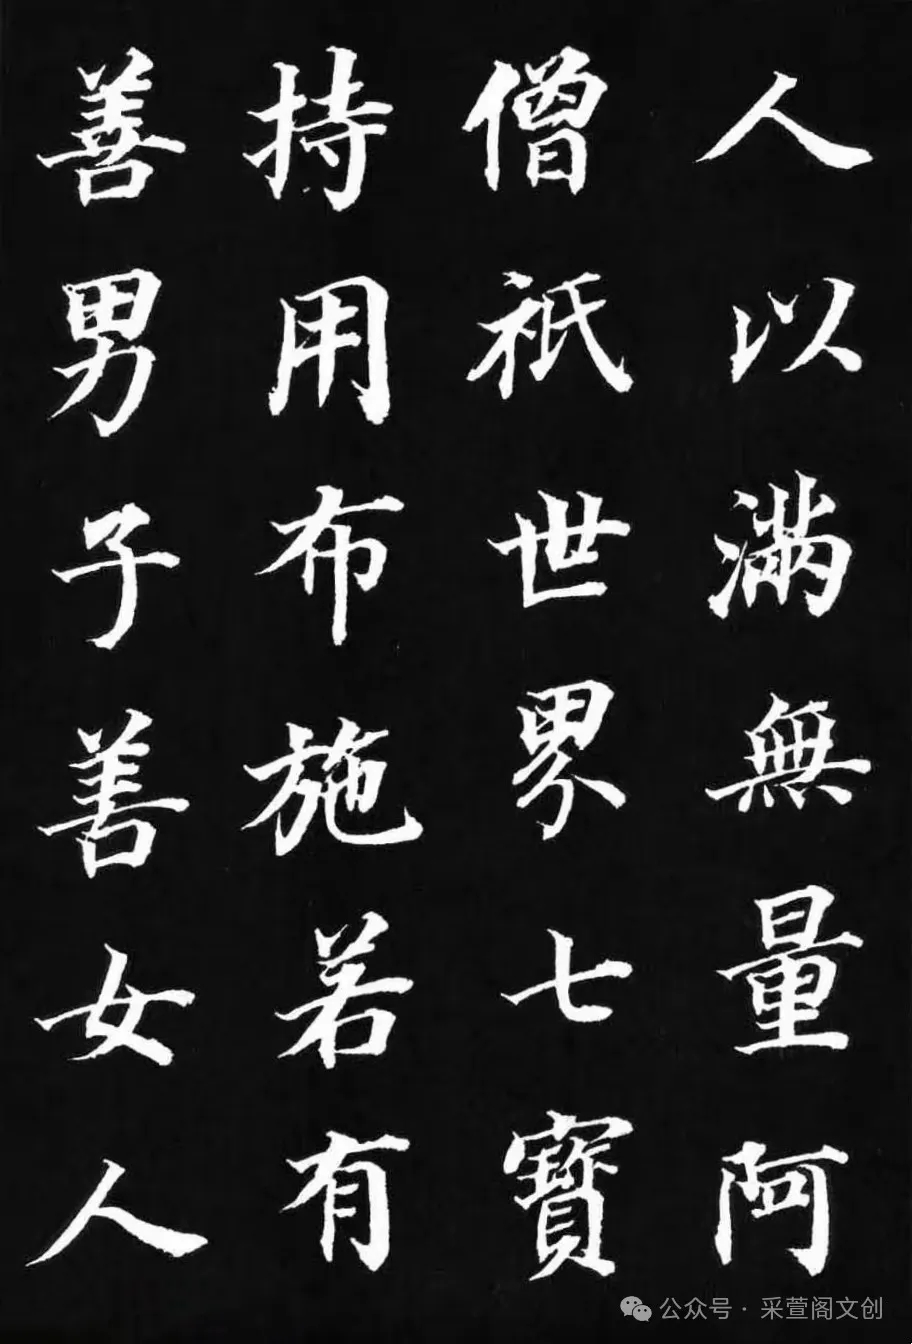 人以滿無量阿
僧祇世界七寶
持用布施若有
善男子善女人
公众号·采萱阁文创